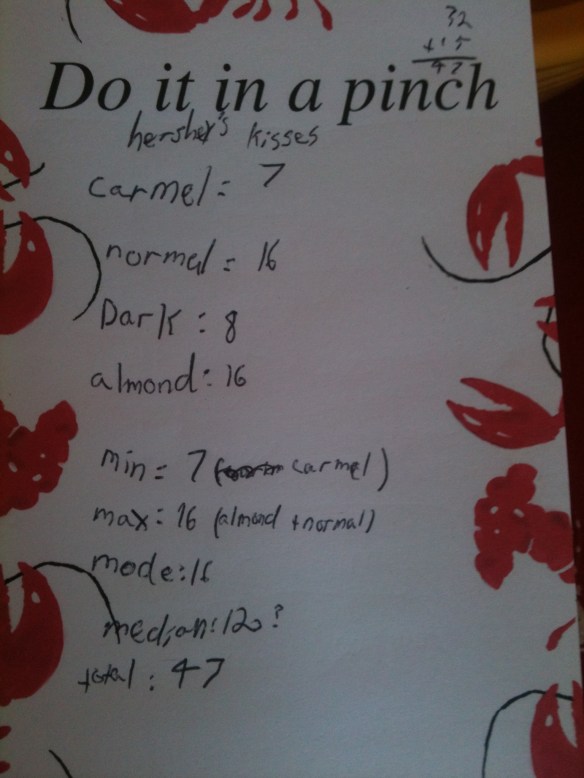 32
+15
47
Do it in a pinch
hershey's kisses
carmel = 7
normal = 16
Dark : 8
almond: 16
min = 7 (carmel)
max: 16 (almond + normal)
mode: 16
median: 12?
total: 47